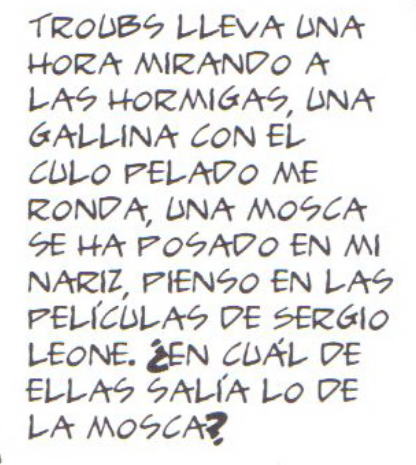 TROUBS LLEVA UNA
HORA MIRANDO A
LAS HORMIGAS, UNA
GALLINA CON EL
CULO PELADO ME
RONDA, UNA MOSCA
SE HA POSADO EN MI
NARIZ, PIENSO EN LAS
PELÍCULAS DE SERGIO
LEONE. ¿EN CUÁL DE
ELLAS SALÍA LO DE
LA MOSCA?